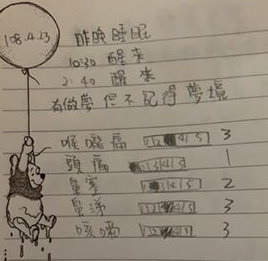 108.4.23
昨晚睡眠
10:30 醒來
2:40 醒來
有做夢但不記得夢境
喉嚨痛 1 2 4 5 3
頭痛 3 4 5 1
鼻塞 1 3 4 5 2
鼻涕 1 2 4 5 3
咳嗽 1 2 4 5 3